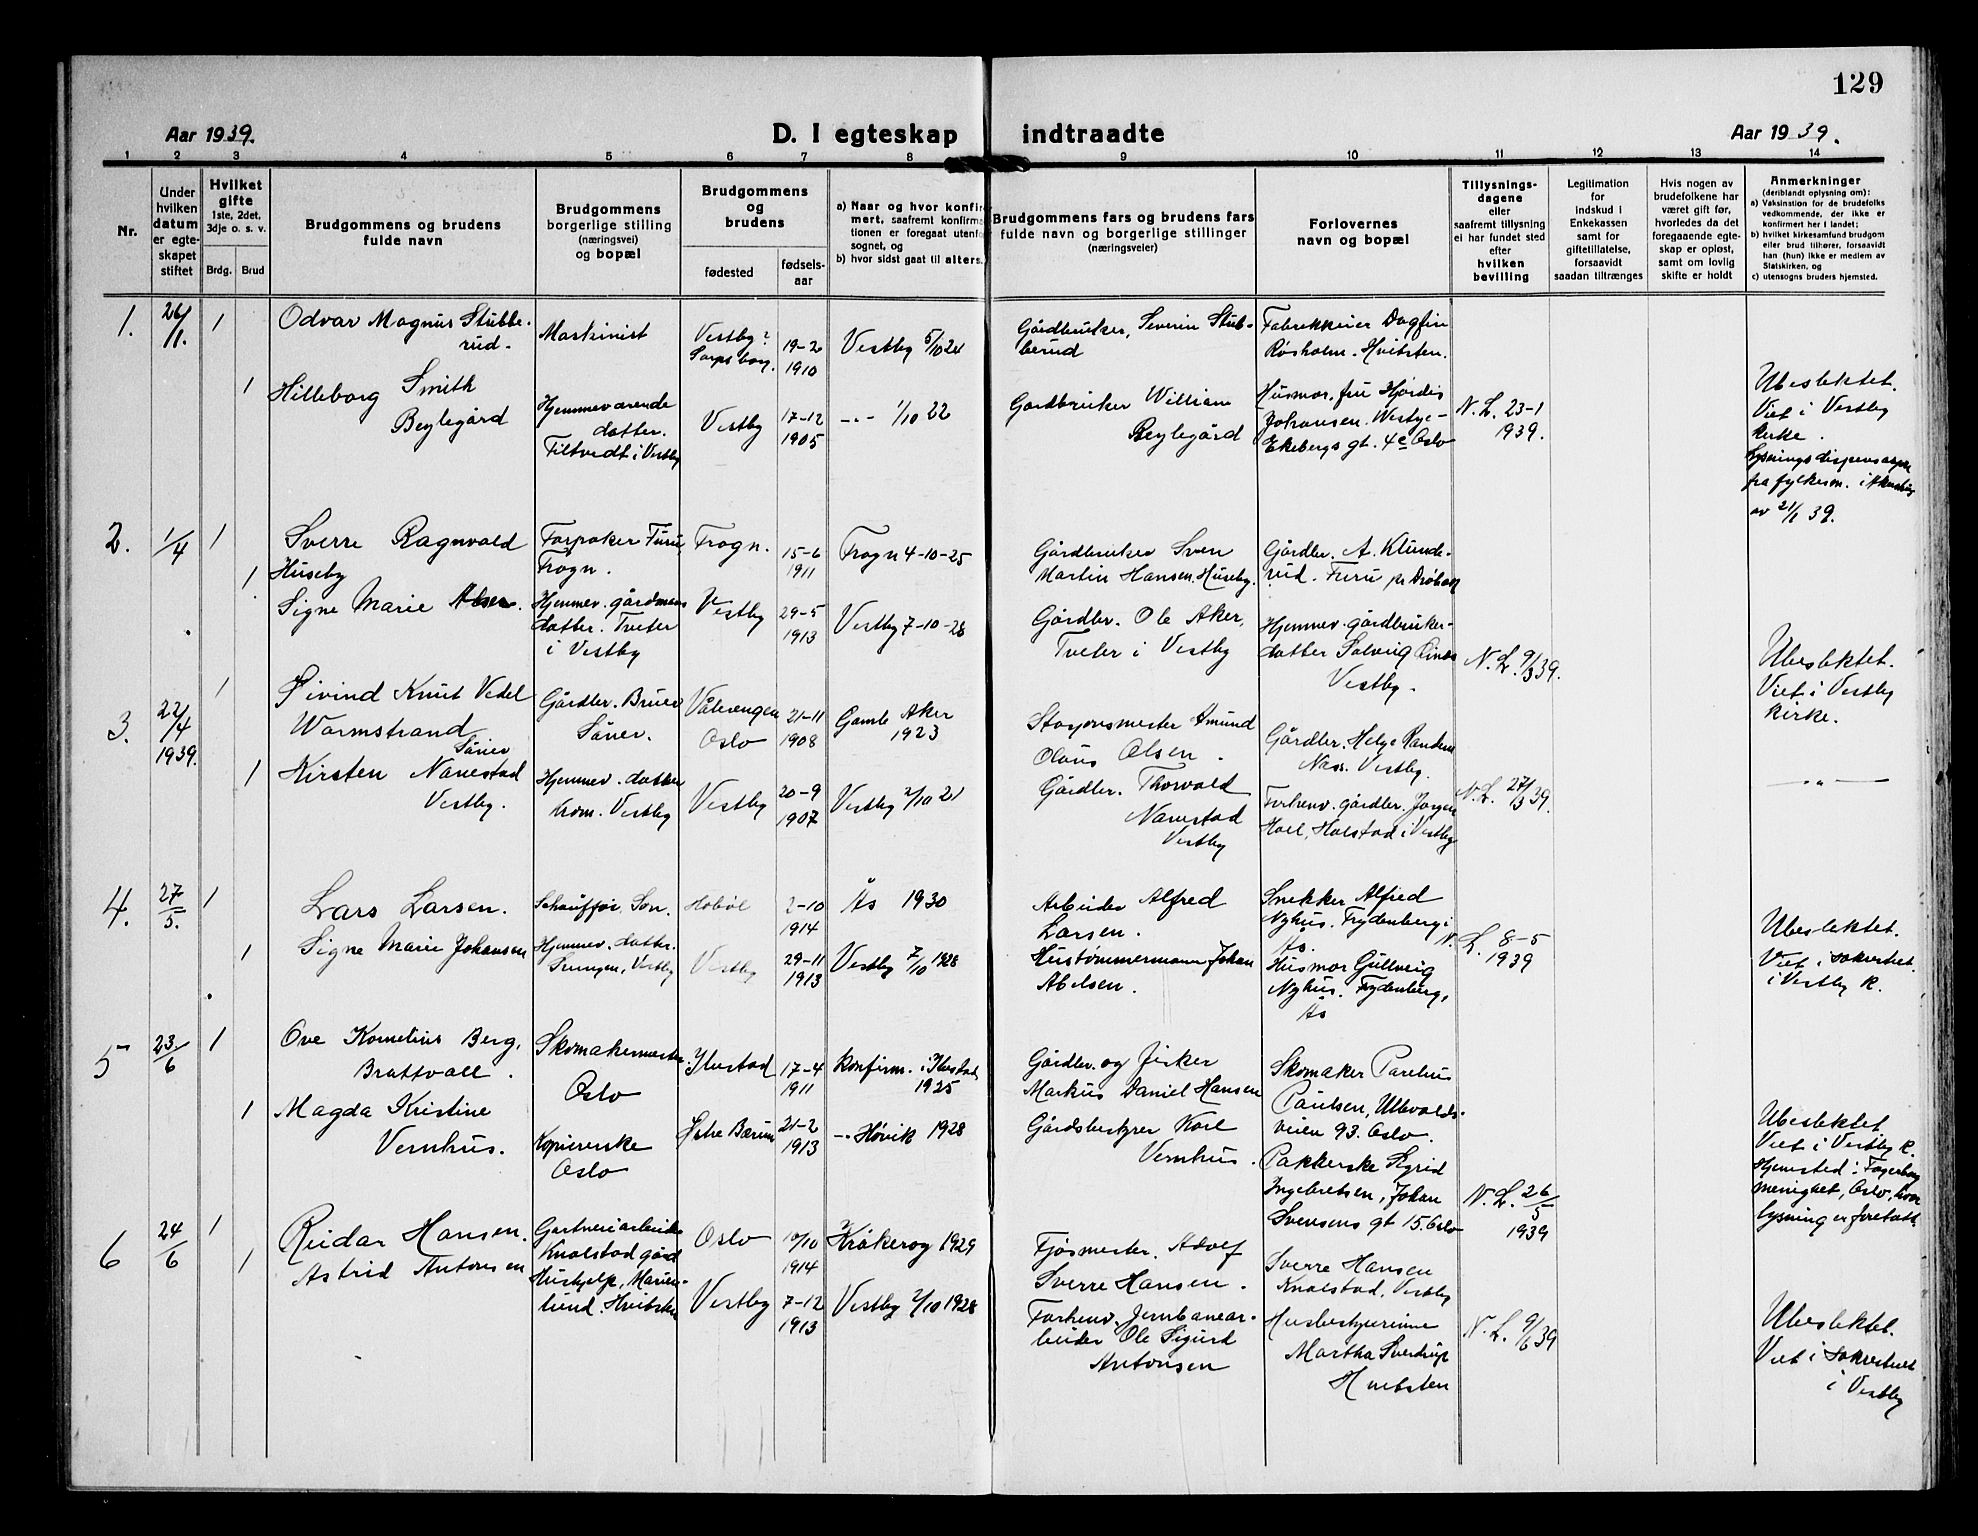 129
Aar 1939.
D. I egteskap indtraadte
Aar 1939.
1 2 3 4 5 6 7 8 9 10 11 12 13 14
Nr.
Under
hvilken
datum
er egte-
skapet
stiftet
Hvilket
gifte
1ste, 2det,
3dje o. s. v.
Brdg. Brud
Brudgommens og brudens
fulde navn
Brudgommens
borgerlige stilling
(næringsvei)
og bopæl
Brudgommens
og
brudens
fødested
fødsels-
aar
a) Naar og hvor konfir-
mert, saafremt konfirma-
tionen er foregaat utenfor
sognet, og
b) hvor sidst gaat til alters.
Brudgommens fars og brudens fars
fulde navn og borgerlige stillinger
(næringsveier)
Forlovernes
navn og bopæl
Tillysnings-
dagene
eller
saafremt tillysning
ei har fundet sted
efter
hvilken
bevilling
Legitimation
for
indskud i
Enkekassen
samt for
giftetillatelse,
forsaavidt
saadan tiltrænges
Hvis nogen av
brudefolkene har
været gift før,
hvorledes da det
foregaaende egte-
skap er opløst,
samt om lovlig
skifte er holdt
Anmerkninger
(deriblandt oplysning om):
a) Vaksination for de brudefolks
vedkommende, der ikke er
konfirmert her i landet;
b) hvilket kirkesamfund brudgom
eller brud tilhører, forsaavidt
han (hun) ikke er medlem av
Statskirken, og
c) utensogns bruders hjemsted.
1.
26/1.
1
Odvar Magnus Stubbe-
rud.
Maskinist
Vestby?
Sarpsborg.
19-2
1910
Vestby 5/10 24
Gårdbruker, Severin Stub-
berud
Fabrekkeier Dagfin
Røsholm. Hvitsten.
1
Hilleborg Smith
Beylegård
Hjemmeværende
datter.
Filtvedt i Vestby
Vestby
17-12
1905
-"- 1/10 22
Gardbruker William
Beylegård
Husmor, fru Hjørdis
Johansen. Westye-
Ekebergs gt. 4c Oslo
N. L. 23-1
1939.
Ubeslektet.
Viet i Vestby
kirke.
Lysningsdispensasjon
fra fylkesm. i Akershus
av 21/1 39.
2.
1/4
1
Sverre Ragnvald
Huseby
Forpakter Furu
Frogn.
Frogn.
15-6
1911
Frogn 4-10-25
Gårdbruker Sven
Martin Hansen. Huseby.
Gårdbr. A. Klunde-
rud. Furu pr Drøbak
1
Signe Marie Aker.
Hjemmev. gårdmans
datter. Tveter
i Vestby
Vestby
29-5
1913
Vestby 7-10-28
Gårdbr. Ole Aker,
Tveter i Vestby
Hjemmev. gårdbruker-
datter Solveig
Vestby.
N. L. 9/3 39.
Ubeslektet.
Viet i Vestby
kirke.
3.
22/4
1939.
1
Øivind Knut Vedel
Warmstrand
Såner
Gårdbr. Bruer
Såner.
Vålerengen
Oslo
21-11
1908
Gamle Aker
1923
Stasjonsmester Amund
Olaus Olsen.
Gårdbr. Helge Randem
Næss. Vestby.
1
Kirsten Navestad
Vestby.
Hjemmev. datter
Krom. Vestby
Vestby
20-9
1907
Vestby 2/10 21
Gårdbr. Thorvald
Navestad
Vestby
Forhenv. gårdbr. Jørgen
Hoel, Holstad i Vestby
N. L. 27/3 39.
— " —
4.
27/5.
1
Lars Larsen.
Schauffør. Son.
Hobøl
2-10
1914
Ås 1930
Arbeider Alfred
Larsen.
Snekker Alfred
Nyhus. Frydenberg i
Ås.
1
Signe Marie Johansen
Hjemmev. datter.
Srengen, Vestby
Vestby
29-11
1913
Vestby 7/10 1928
Hustømmermann Johan
Abelsen.
Husmor Gullveig
Nyhus. Frydenberg,
Ås
N. L. 8-5
1939
Ubeslektet.
Viet i sakrestiet.
i Vestby K.
5
23/6
1
Ove Kornelius Berg.
Brattvall.
Skomakermester.
Oslo
Ibestad
17-4
1911
konfirm. i Ibestad
1925
Gårdbr. og fisker
Markus Daniel Hansen
Skomaker Parelius
Paulsen, Ullevålds-
veien 93. Oslo.
1
Magda Kristine
Vernhus.
Kopiererske
Oslo
Østre Bærum
21-2
1913
-"- Høvik 1928
Gårdsbestyrer Karl
Vernhus.
Pakkerske Sigrid
Ingebretsen, Johan
Svensens gt 15 Oslo
N. L. 26/5
1939
Ubeslektet
Viet i Vestby K.
Hjemsted i Fagerborg
menighet, Oslo, hvor
lysning er foretatt.
6
24/6
1
Reidar Hansen.
Gartneriarbeider
Knalstad gård
Oslo
10/10
1914
Kråkerøy 1929
Fjøsmester. Adolf
Sverre Hansen.
Sverre Hansen
Knalstad, Vestby
1
Astrid Antonsen
Hushjelp, Marien-
lund. Hvitsten
Vestby
7-12
1913
Vestby 7/10 1928
Forhenv. Jernbanear-
beider Ole Sigurd
Antonsen
Husbestyrerinne
Martha Sverdrup
Hvitsten
N. L. 9/6 39
Ubeslektet.
Viet i sakrestiet
i Vestby